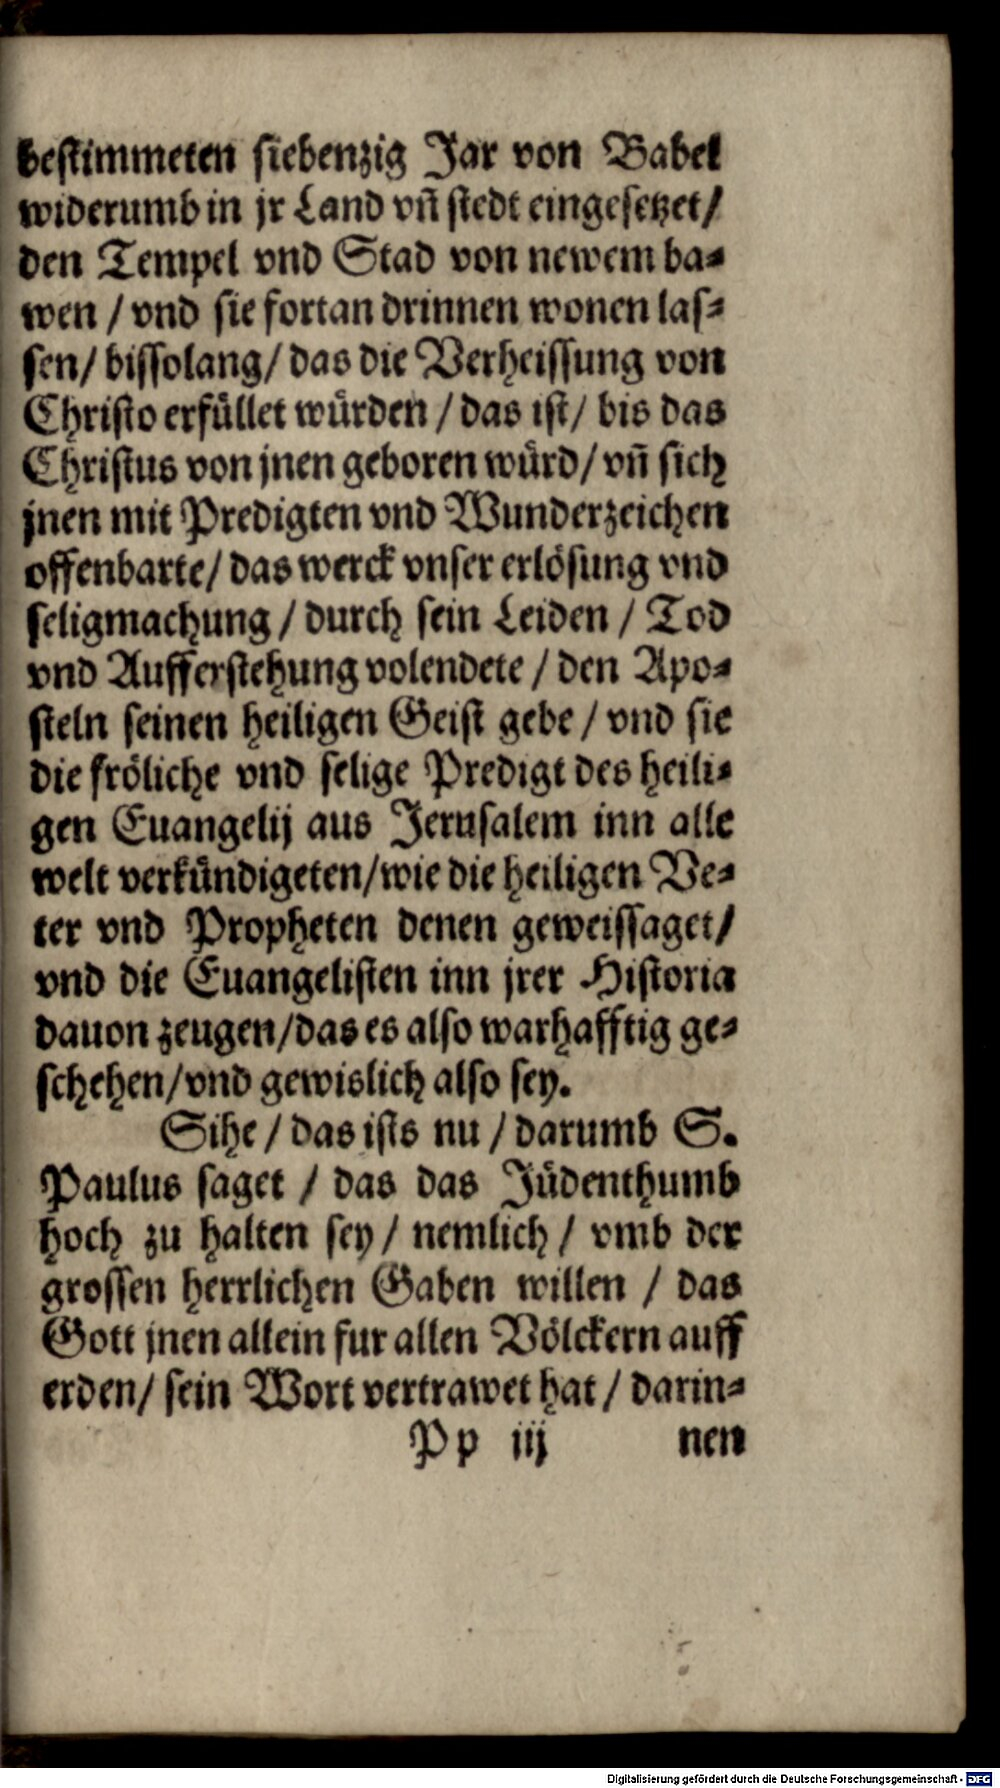 bestimmeten siebenzig Jar von Babel
widerumb in jr Land vn̄ stedt eingesetzet/
den Tempel vnd Stad von newem ba-
wen / vnd sie fortan drinnen wonen las-
sen/ bissolang/ das die Verheissung von
Christo erfüllet würden / das ist/ bis das
Christus von jnen geboren würd/ vn̄ sich
jnen mit Predigten vnd Wunderzeichen
offenbarte/ das werck vnser erlösung vnd
seligmachung / durch sein Leiden / Tod
vnd Aufferstehung volendete / den Apo-
steln seinen heiligen Geist gebe / vnd sie
die fröliche vnd selige Predigt des heili-
gen Euangelij aus Jerusalem inn alle
welt verkündigeten/wie die heiligen Ve-
ter vnd Propheten denen geweissaget/
vnd die Euangelisten inn jrer Historia
dauon zeugen/das es also warhafftig ge-
schehen/vnd gewislich also sey.
Sihe / das ists nu / darumb S.
Paulus saget / das das Jüdenthumb
hoch zu halten sey / nemlich / vmb der
grossen herrlichen Gaben willen / das
Gott jnen allein fur allen Völckern auff
erden/ sein Wort vertrawet hat / darin-
Pp iij nen
Digitalisierung gefördert durch die Deutsche Forschungsgemeinschaft - DFG